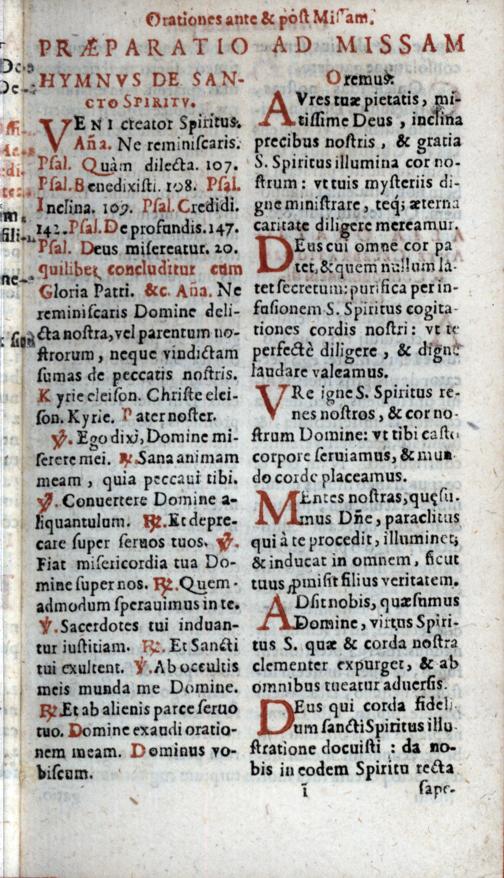 Orationes ante & post Missam.
PRÆPARATIO AD MISSAM
HYMNVS DE SAN-
CTO SPIRITV.
VENI creator Spiritus.
Aña. Ne reminiscaris.
Psal. Quàm dilecta. 107.
Psal. Benedixisti. 108. Psal.
Inclina. 109. Psal. Credidi.
142. Psal. De profundis. 147.
Psal. Deus misereatur. 20.
quilibet concluditur cum
Gloria Patri. &c. Aña. Ne
reminiscaris Domine deli-
cta nostra, vel parentum no-
strorum, neque vindictam
sumas de peccatis nostris.
Kyrie eleison. Christe elei-
son. Kyrie. Pater noster.
℣. Ego dixi, Domine mi-
serere mei. ℟. Sana animam
meam, quia peccaui tibi.
℣. Conuertere Domine a-
liquantulum. ℟. Et depre-
care super seruos tuos. ℣.
Fiat misericordia tua Do-
mine super nos. ℟. Quem-
admodum sperauimus in te.
℣. Sacerdotes tui induan-
tur iustitiam. ℟. Et Sancti
tui exultent. ℣. Ab occultis
meis munda me Domine.
℟. Et ab alienis parce seruo
tuo. Domine exaudi oratio-
nem meam. Dominus vo-
biscum.
Oremus.
AVres tuæ pietatis, mi-
tissime Deus, inclina
precibus nostris, & gratia
S. Spiritus illumina cor no-
strum: vt tuis mysteriis di-
gne ministrare, teq; æterna
caritate diligere mereamur.
DEus cui omne cor pa
tet, & quem nullum la-
tet secretum: purifica per in-
fusionem S. Spiritus cogita-
tiones cordis nostri: vt te
perfectè diligere, & digne
laudare valeamus.
VRe igne S. Spiritus re-
nes nostros, & cor no-
strum Domine: vt tibi casto
corpore seruiamus, & mun
do corde placeamus.
MEntes nostras, quęsu-
mus Dñe, paraclitus
qui à te procedit, illuminet;
& inducat in omnem, sicut
tuus ꝓmisit filius veritatem.
ADsit nobis, quæsumus
Domine, virtus Spiri-
tus S. quæ & corda nostra
clementer expurget, & ab
omnibus tueatur aduersis.
DEus qui corda fideli
um sancti Spiritus illu
stratione docuisti: da no-
bis in eodem Spiritu recta
ī sape-